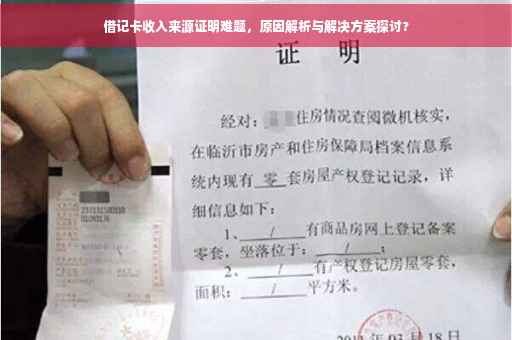 借记卡收入来源证明难题，原因解析与解决方案探讨？
证 明
经对：住房情况查阅微机核实，
在临沂市房产和住房保障局档案信息系
统内现有 零 套房屋产权登记记录，详
细信息如下：
1、 / 有商品房网上登记备案
零套，坐落位于： / ；
2、 / 有产权登记房屋零套，
面积： / 平方米。
03月18日